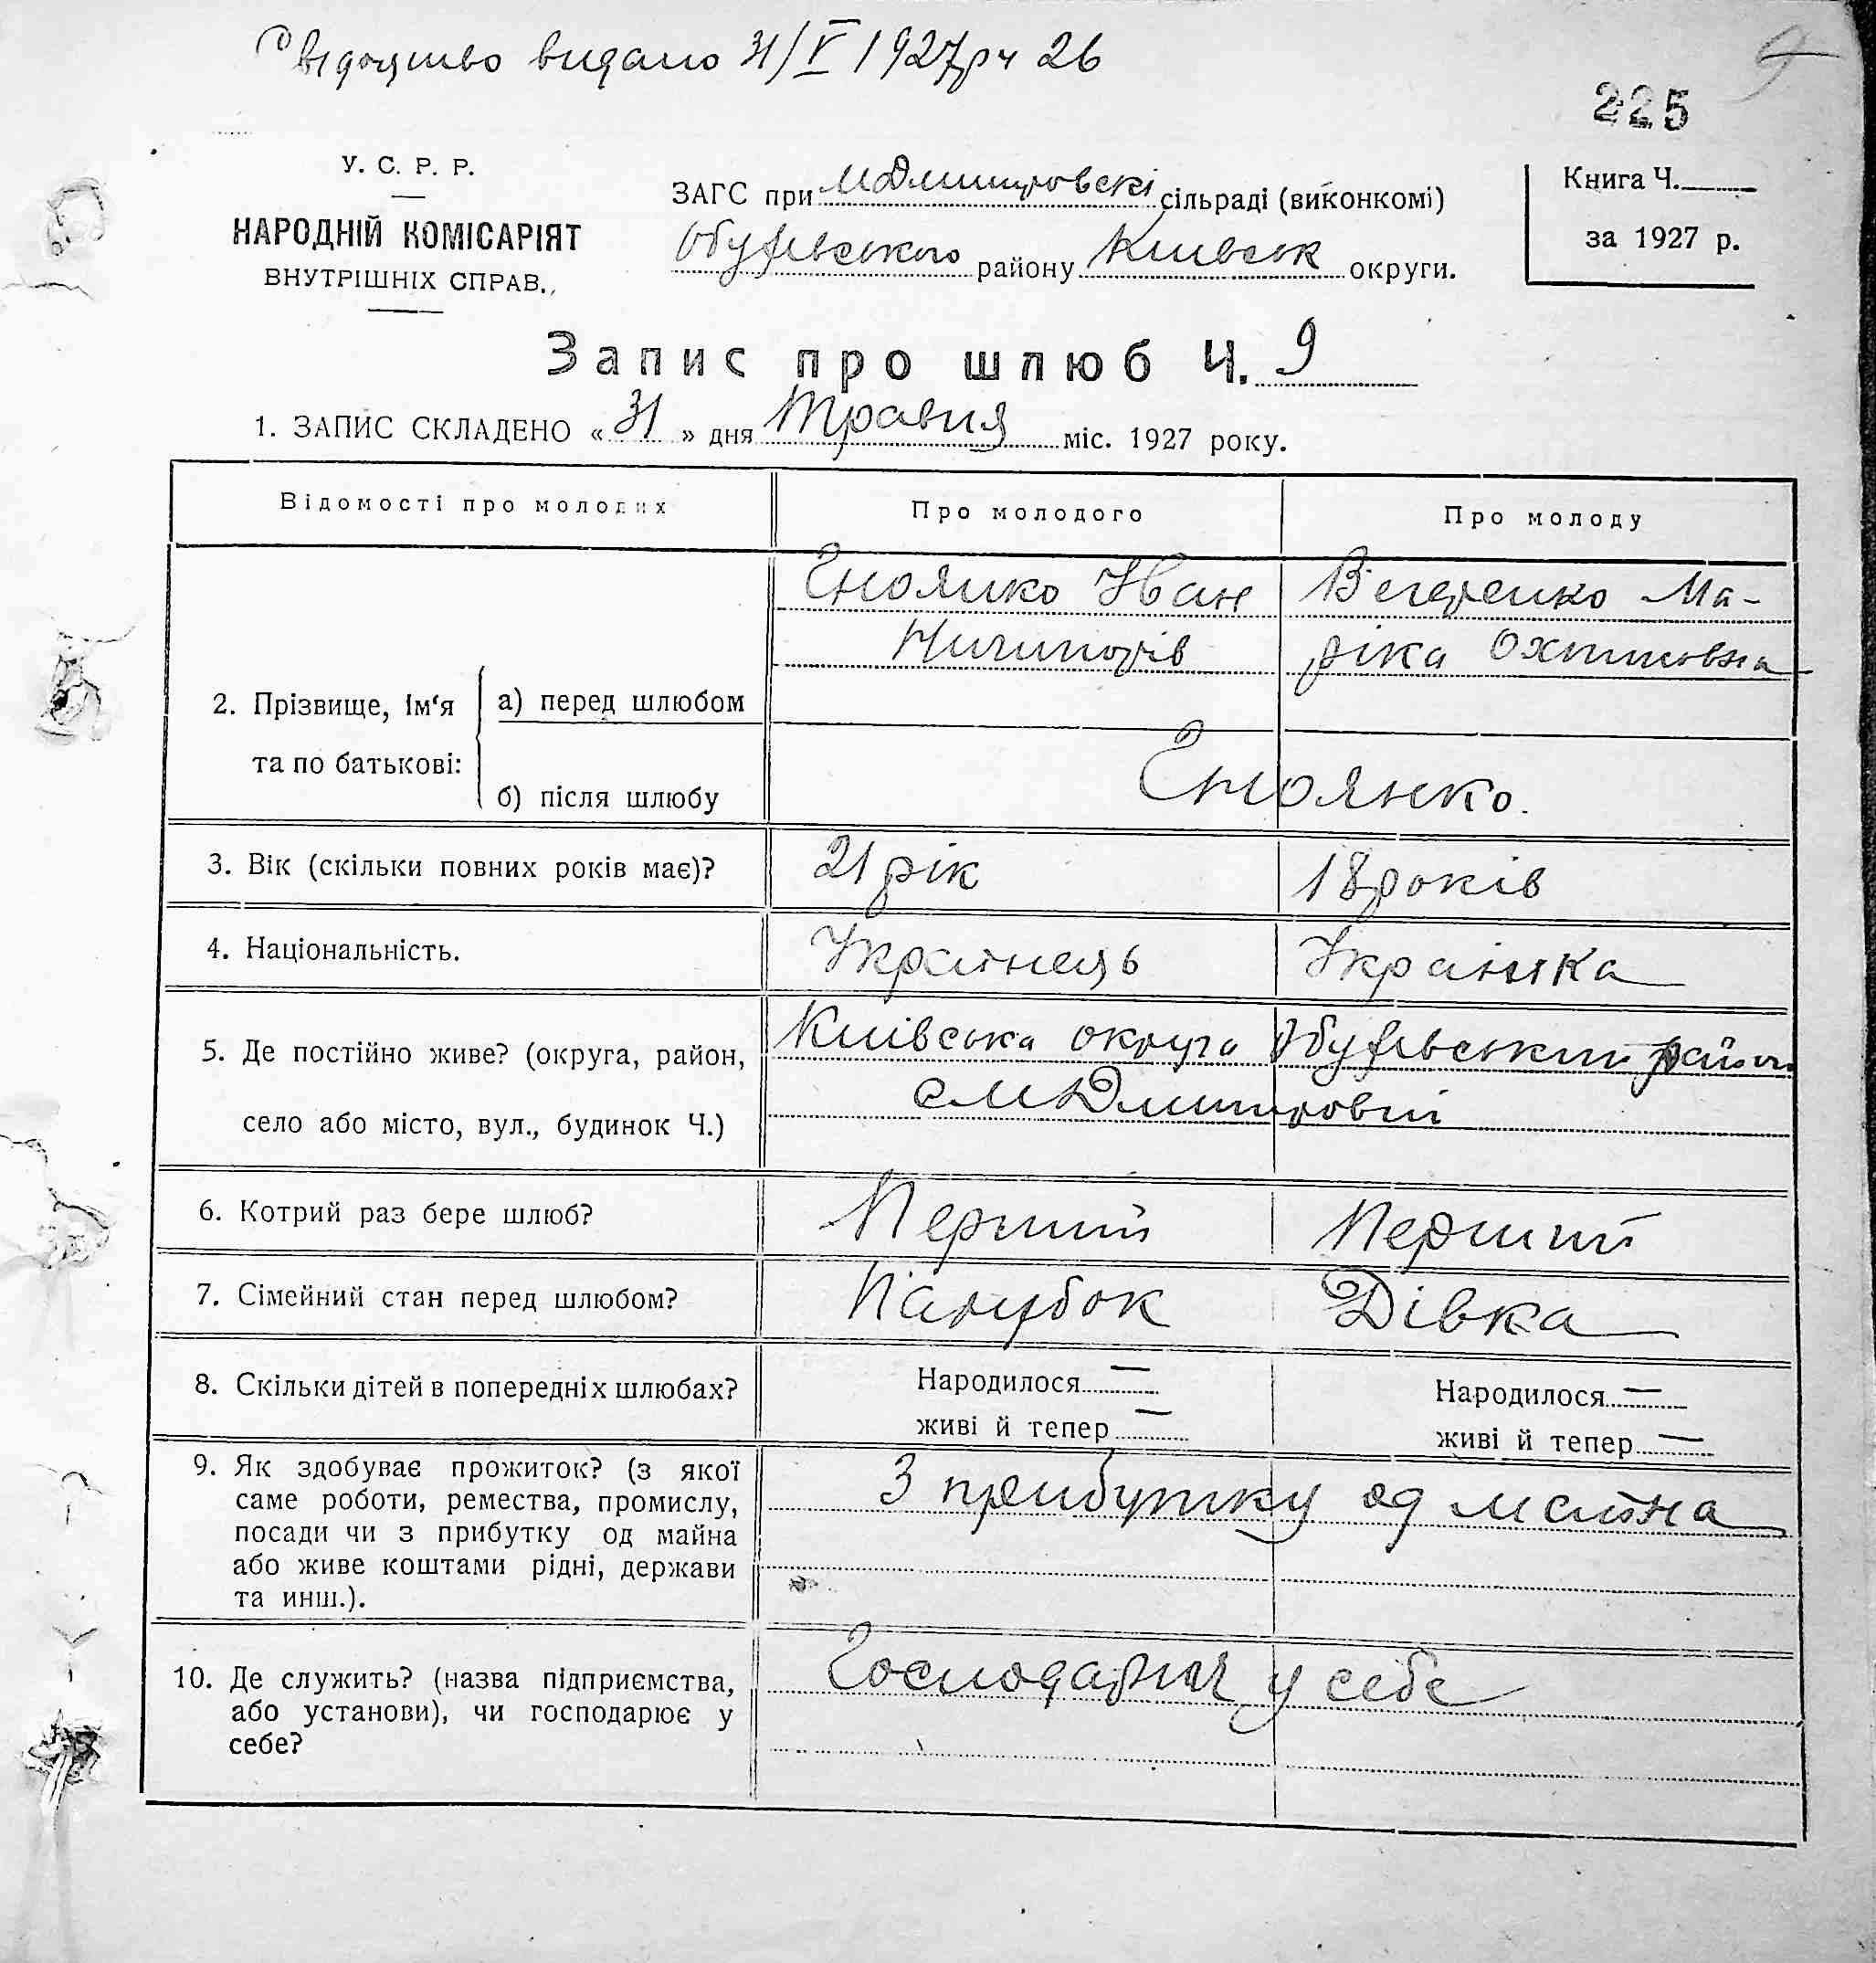 Свідоцтво видано 31/V 1927 р ч 26
225
У. С. Р. Р.
НАРОДНІЙ КОМІСАРІЯТ
ВНУТРІШНІХ СПРАВ.
ЗАГС при МДмитровскі сільраді (виконкомі)
Обухівського району Київськ округи.
Книга Ч.
за 1927 р.
Запис про шлюб Ч. 9
1. ЗАПИС СКЛАДЕНО « 31 » дня Травня міс. 1927 року.
Відомості про молодих
Про молодого
Про молоду
2. Прізвище, ім'я та по батькові:
а) перед шлюбом
Іван
Ничипорів
Ма-
ріка
б) після шлюбу
3. Вік (скільки повних років має)?
21 рік
18 років
4. Національність.
Українець
Українка
5. Де постійно живе? (округа, район,
село або місто, вул., будинок Ч.)
Київська округа Обухівський район
с МДмитровці
6. Котрий раз бере шлюб?
Перший
Перший
7. Сімейний стан перед шлюбом?
Парубок
Дівка
8. Скільки дітей в попередніх шлюбах?
Народилося —
живі й тепер —
Народилося —
живі й тепер —
9. Як здобуває прожиток? (з якої
саме роботи, ремества, промислу,
посади чи з прибутку од майна
або живе коштами рідні, держави
та инш.).
З прибутку од майна
10. Де служить? (назва підприємства,
або установи), чи господарює у
себе?
у себе